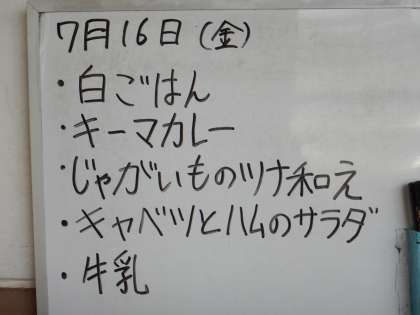 7月16日(金)
・白ごはん
・キーマカレー
・じゃがいものツナ和え
・キャベツとハムのサラダ
・牛乳